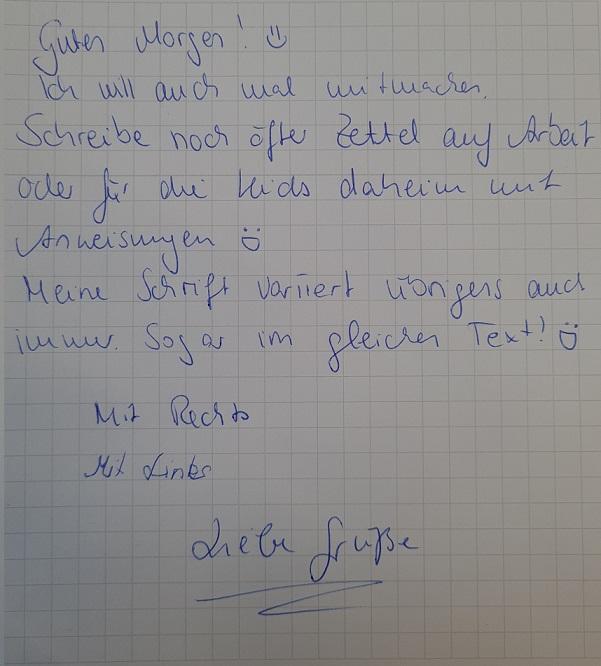 Guten Morgen! ☺
Ich will auch mal mitmachen.
Schreibe noch öfter Zettel auf Arbeit
oder für die Kids daheim mit
Anweisungen ☺
Meine Schrift variiert übrigens auch
immer. Sogar im gleichen Text! ☺
Mit Rechts
Mit Links
Liebe Grüße